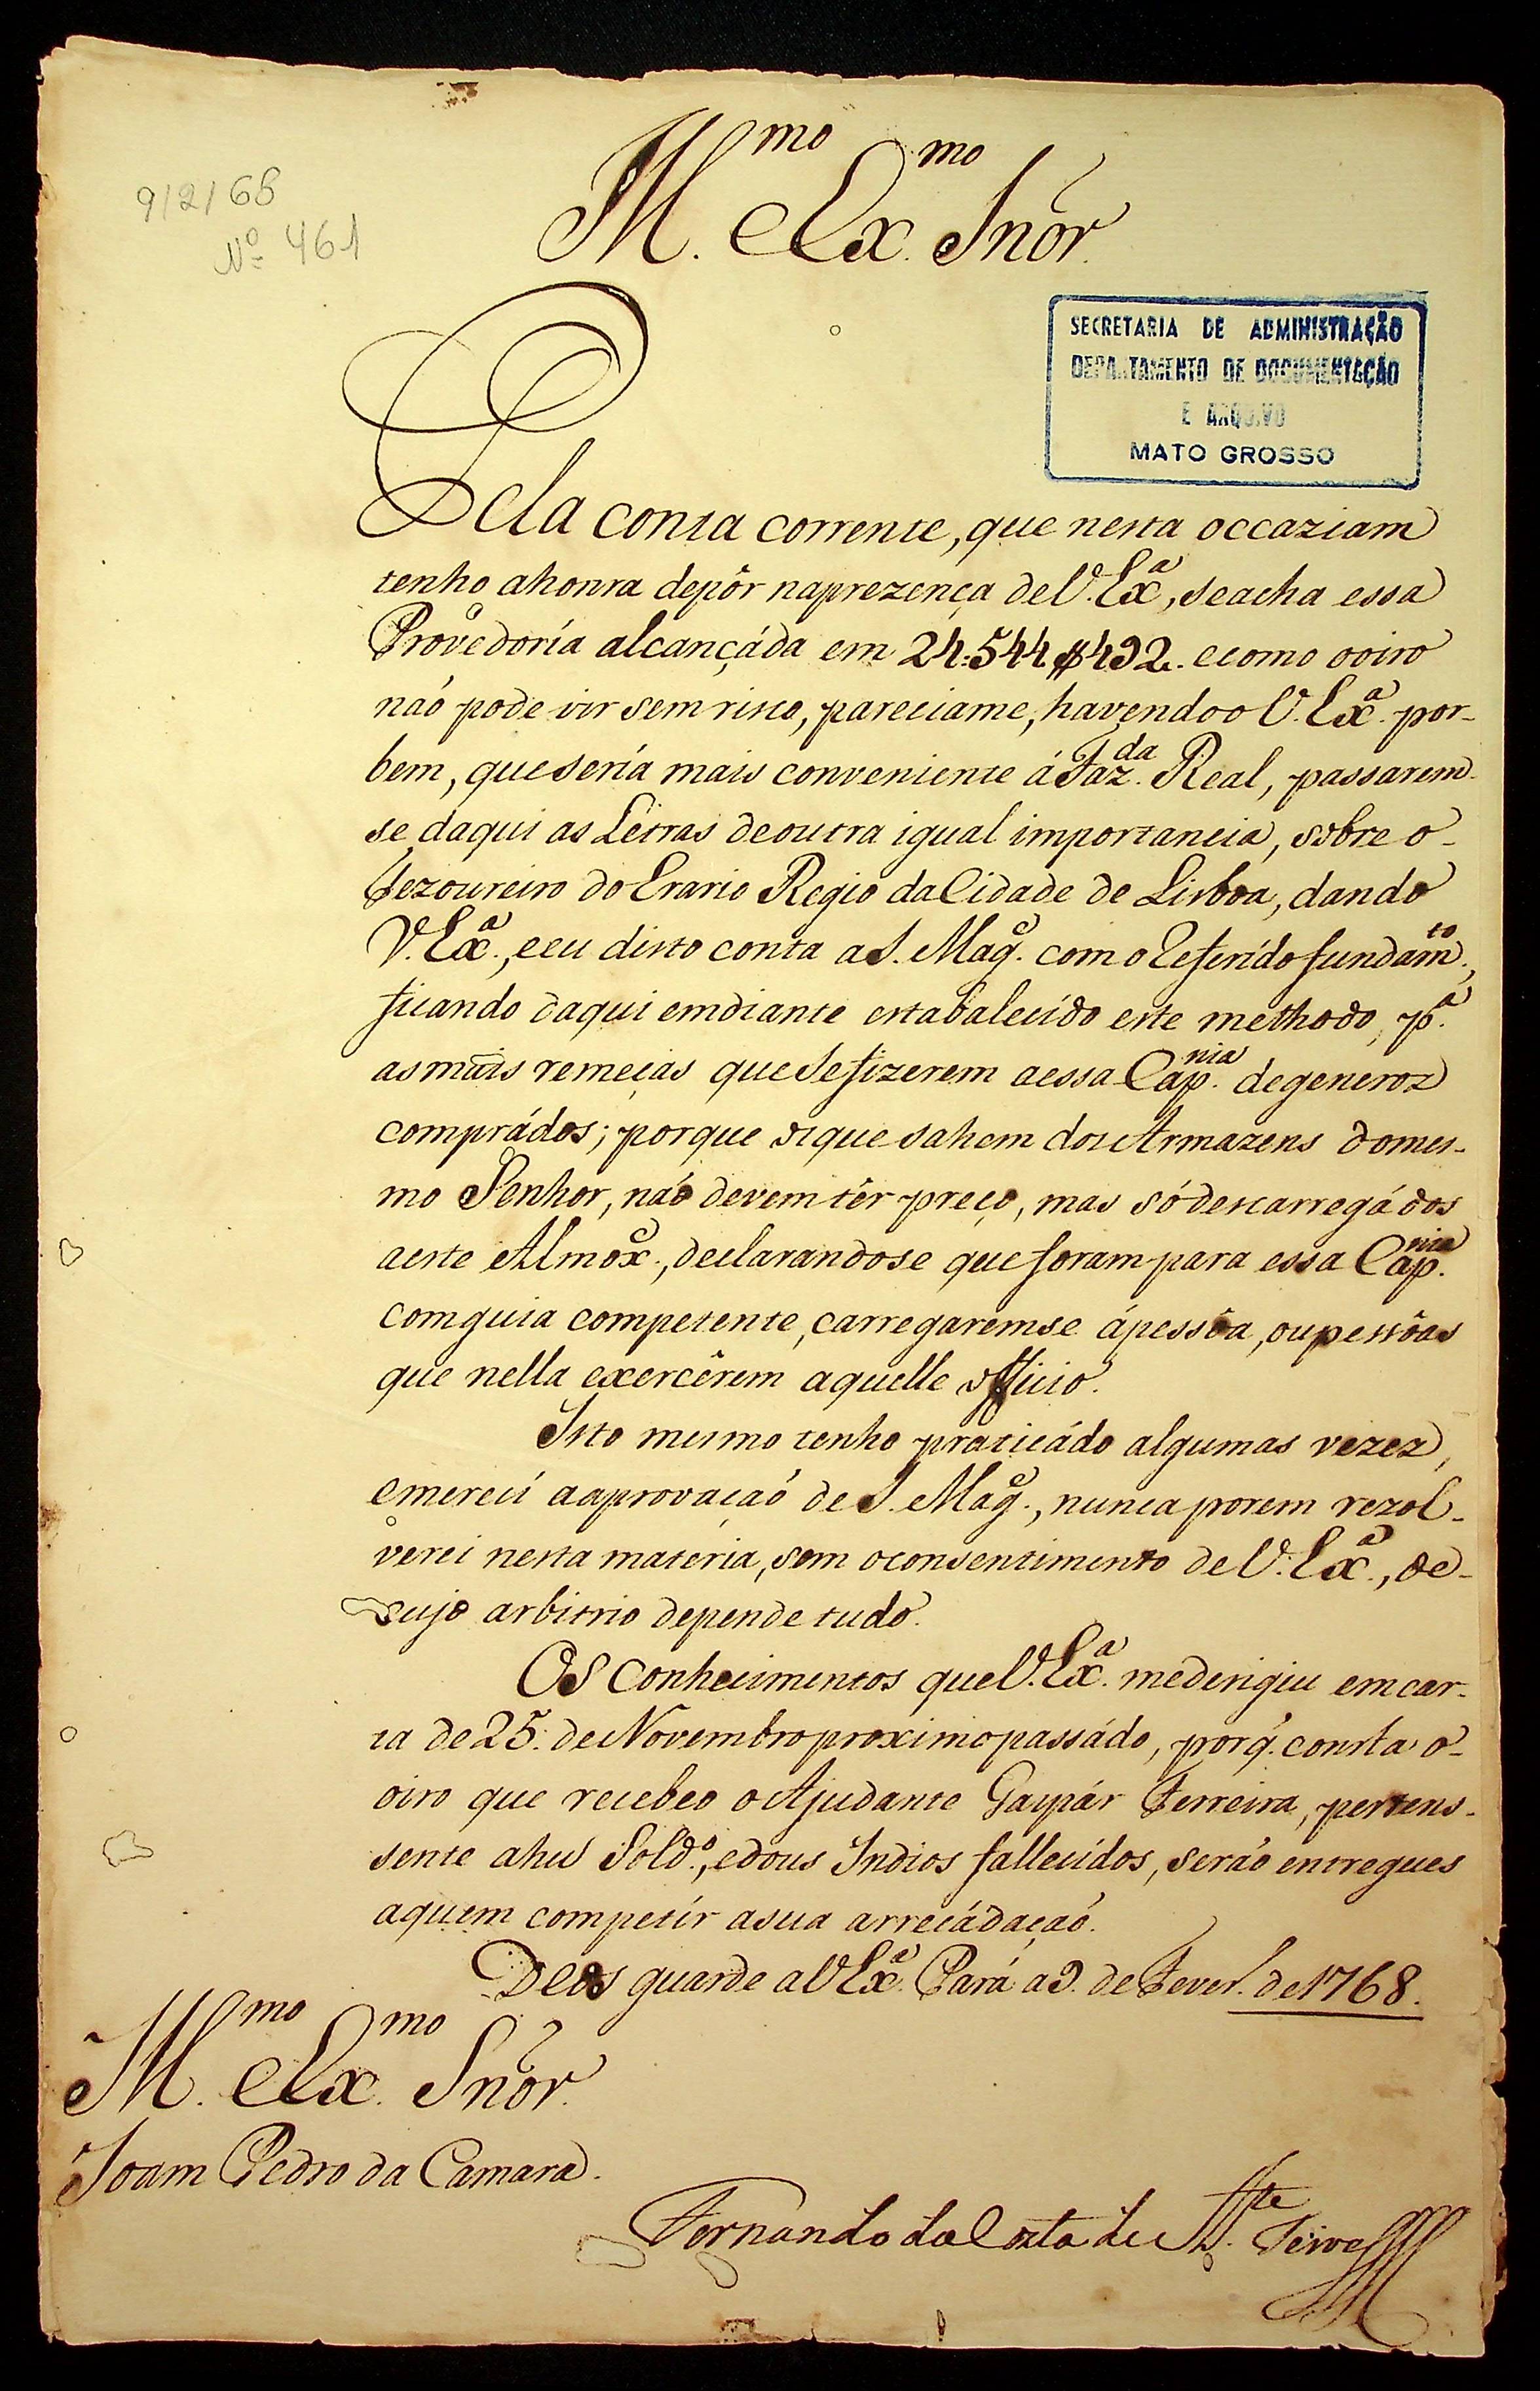 9/2/68
Nº 461
Ill.mo Ex.mo Snõr.
SECRETARIA DE ADMINISTRAÇÃO
DEPARTAMENTO DE DOCUMENTAÇÃO
E ARQUIVO
MATO GROSSO
Pela conta corrente, que nesta occaziam
tenho ahonra depôr naprezença deV. Ex.ª, seacha essa
Provedoría alcançáda em 24:544$492. ecomo ooiro
naó pode vir sem risco, pareciame, havendoo V. Ex.ª por-
bem, que sería mais conveniente á Faz.da Real, passarem-
se daqui as Letras deoutra igual importancia, sobre o-
Tezoureiro do Erario Regio da Cidade de Lisboa, dando
V. Ex.ª, eeu disto conta aS. Mag.e com o referído fundam.to,
ficando daqui emdiante estabalecído este methodo, p.ª
asmais remeças que sefizerem aessa Cap.nia degeneroz
comprádos; porque os que sahem dos Armazens domes-
mo Senhor, naó devem têr preço, mas só descarregádos
aeste Almox.e, declarandose que foram para essa Cap.nia
comguia competente, carregaremse ápessôa, oupessôas
que nella exercêrem aquelle officio.
Isto mesmo tenho praticádo algumas vezez,
emerecí aaprovaçaó de S. Mag.e, nunca porem rezol-
verei nesta matéria, sem oconsentimento deV. Ex.ª, de-
cujo arbitrio depende tudo.
Os Conhecimentos queV. Ex.ª mederigiu emcar-
ta de 25. de Novembro proximo passádo, porq̃. consta o-
oiro que recebeo o Ajudante Gaspár Ferreira, pertens-
sente ahu Sold.º, edous Indios fallecídos, seráo entregues
aquem competír asua arrecádaçaó.
Deos guarde aV Ex.ª Pará a 9. de Fever.º de 1768.
Ill.mo Ex.mo Snõr.
Joam Pedro da Camara.
Fernando da Costa de At.te Teive